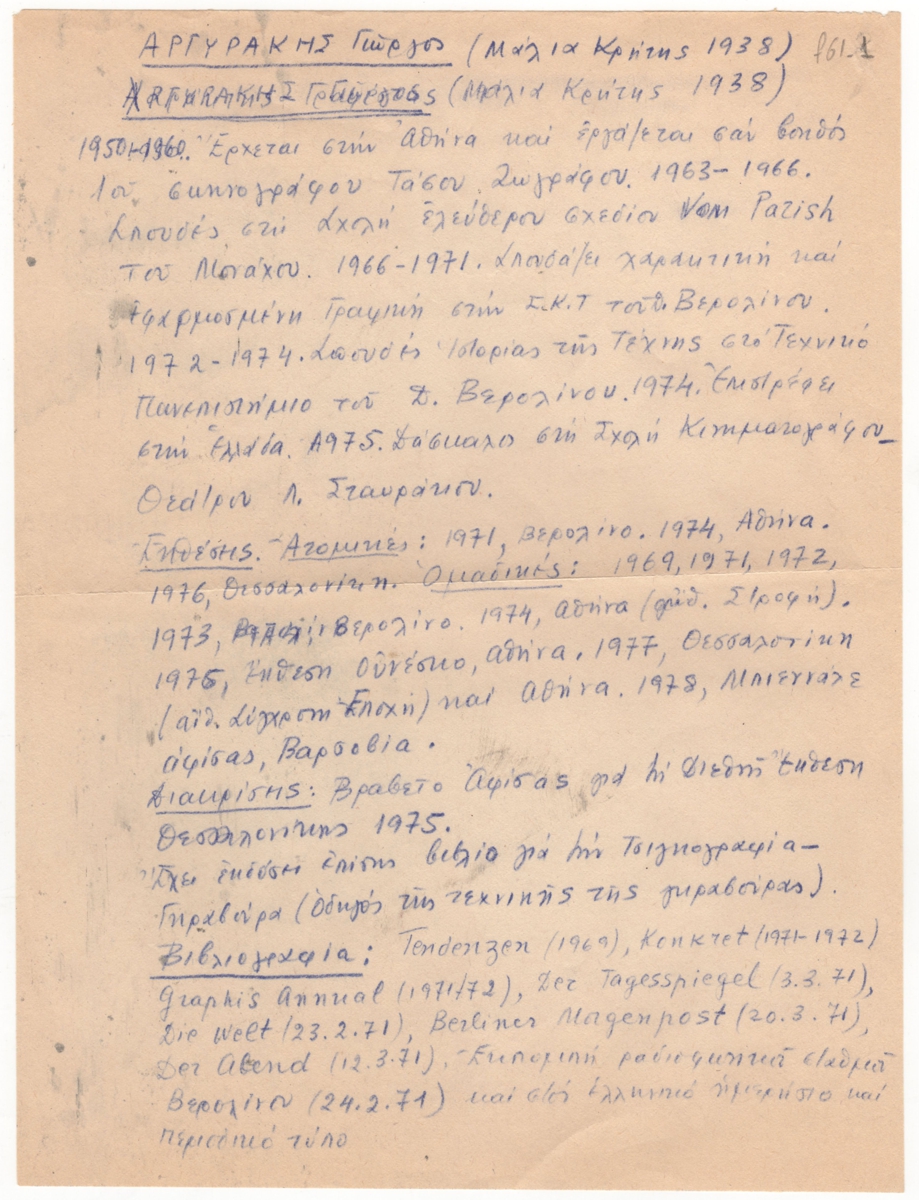 ΑΡΓΥΡΑΚΗΣ Γιῶργος (Μάλια Κρήτης 1938) f61-1
ΑΡΓΥΡΑΚΗΣ Γιῶργος (Μάλια Κρήτης 1938)
1950-1960. Ἔρχεται στήν Ἀθήνα καί ἐργάζεται σάν βοηθός
τοῦ σκηνογράφου Τάσου Ζωγράφου. 1963-1966.
Σπουδές στή Σχολή ἐλεύθερου σχεδίου Parish
τοῦ Μονάχου. 1966-1971. Σπουδάζει χαρακτική καί
ἐφαρμοσμένη Γραφική στήν Σ.Κ.Τ τοῦ Βερολίνου.
1972-1974. Σπουδές Ἱστορίας τῆς Τέχνης στό Τεχνικό
Πανεπιστήμιο τοῦ Δ. Βερολίνου. 1974. Ἐπιστρέφει
στήν Ἑλλάδα. 1975. Δάσκαλος στή Σχολή Κινηματογράφου_
Θεάτρου Λ. Σταυράκου.
Ἐκθέσης. Ἀτομικές: 1971, Βερολίνο. 1974, Ἀθήνα.
1976, Θεσσαλονίκη. Ὁμαδικές: 1969, 1971, 1972,
1973, Βερολίνο. 1974, Ἀθήνα (αἴθ. Στροφή).
1975, Ἔκθεση Οὐνέσκο, Ἀθήνα. 1977, Θεσσαλονίκη
(αἴθ. Σύγχρονη Ἐποχή) καί Ἀθήνα. 1978, Μπιεννάλε
ἀφίσας, Βαρσοβία.
Διακρίσης: Βραβεῖο Ἀφίσας γιά τή Διεθνῆ Ἔκθεση
Θεσσαλονίκης 1975.
Ἔχει ἐκδόσει ἐπίσης βιβλίο γιά τήν Τσιγκογραφία-
Γκραβούρα (Ὁδηγός τῆς τεχνικῆς τῆς γκραβούρας).
Βιβλιογραφία: Tendenzen (1969), Konkret (1971-1972)
Graphis Annual (1971/72), Der Tagesspiegel (3.3.71),
Die Welt (23.2.71), Berliner Morgenpost (20.3.71),
Der Abend (12.3.71). Ἐκπομπή ραδιοφωνικοῦ σταθμοῦ
Βερολίνου (24.2.71) καί στόν ἑλληνικό ἡμερήσιο καί
περιοδικό τύπο